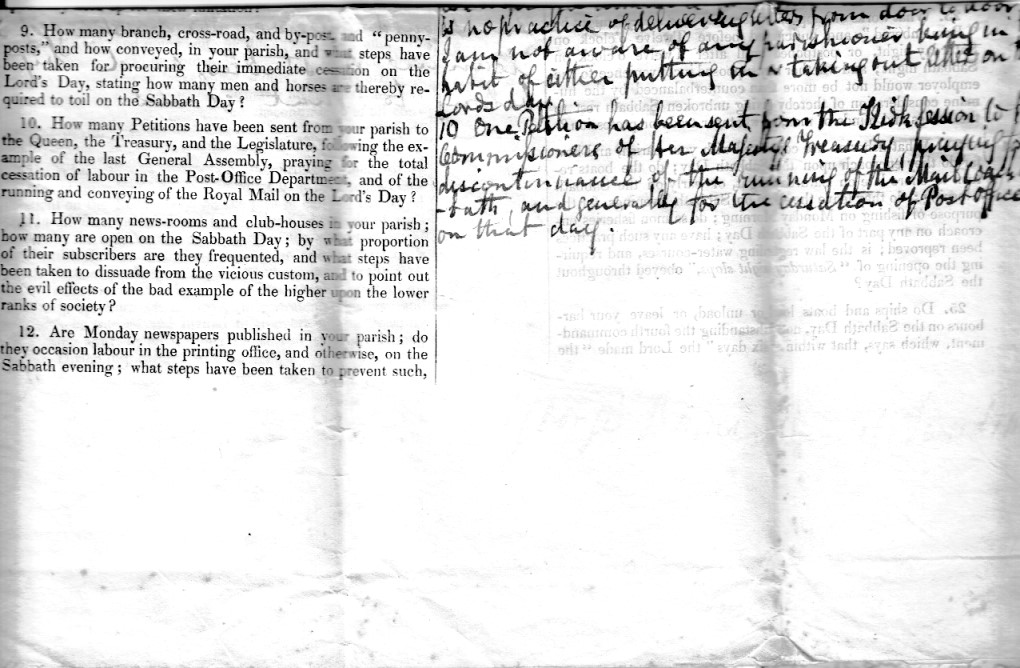 9. How many branch, cross-road, and by-post, and “ penny-
posts,” and how conveyed, in your parish, and what steps have
been taken for procuring their immediate cessation on the
Lord’s Day, stating how many men and horses are thereby re-
quired to toil on the Sabbath Day ?
10. How many Petitions have been sent from your parish to
the Queen, the Treasury, and the Legislature, following the ex-
ample of the last General Assembly, praying for the total
cessation of labour in the Post-Office Department, and of the
running and conveying of the Royal Mail on the Lord’s Day ?
11. How many news-rooms and club-houses in your parish ;
how many are open on the Sabbath Day ; by what proportion
of their subscribers are they frequented, and what steps have
been taken to dissuade from the vicious custom, and to point out
the evil effects of the bad example of the higher upon the lower
ranks of society ?
12. Are Monday newspapers published in your parish ; do
they occasion labour in the printing office, and otherwise, on the
Sabbath evening ; what steps have been taken to prevent such,
is no practice of delivering letters from door to door
I am not aware of any parishioner being in
habit of either putting in or taking out letters on
Lords day
10 One Petition has been sent from the Kirk Session to
Commissioners of Her Majesty's Treasury praying
discontinuance of the running of the Mail Coach
-bath, and generally for the cessation of Post office
on that day.